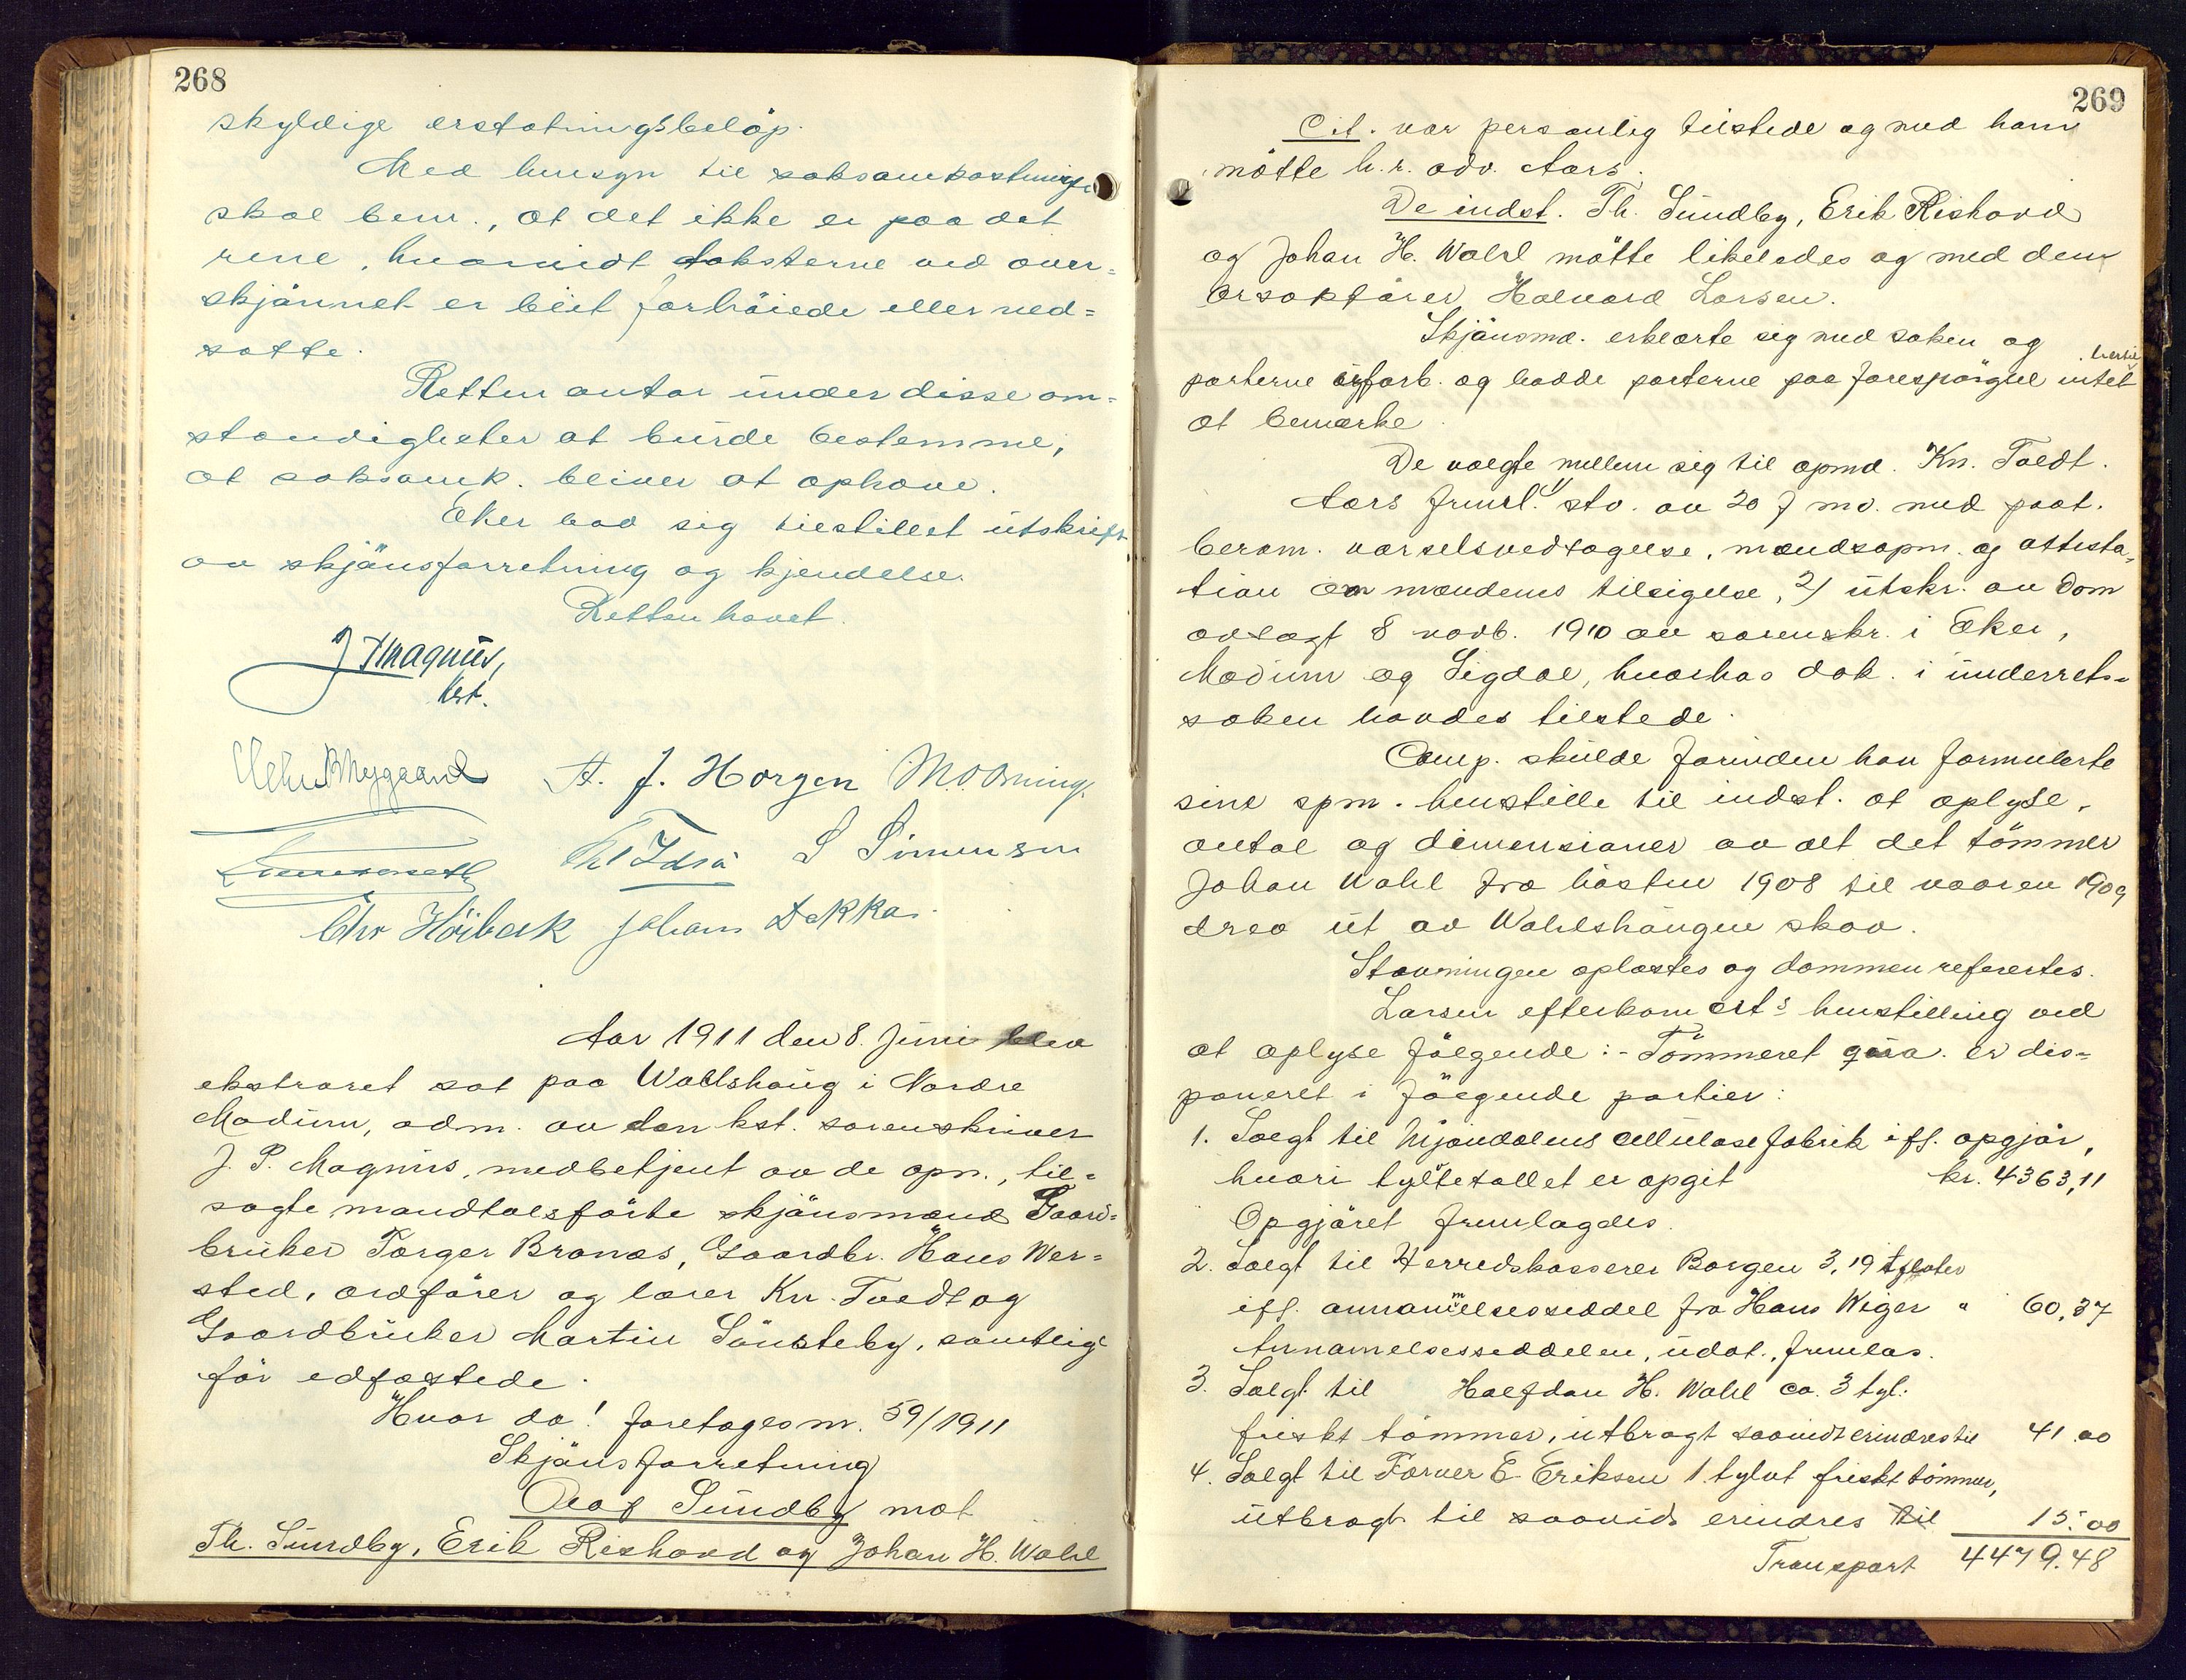 268
skyldige erstatningsbeløp.
Med hensyn til saksomkostninger
skal bem., at det ikke er paa det
rene, hvorvidt taksterne ved over=
skjønnet er blit forhøiede eller ned=
satte.
Retten antar under disse om=
stændigheter at burde bestemme,
at saksomk. bliver at ophæve.
Eker bad sig tilstillet utskrift
av skjønsforretning og kjendelse.
Retten hævet.
J P Magnus,
kst.
A. J. Horgen
S Simensen
Chr Höibak Johans Dakka.
Aar 1911 den 8. Juni blev
ekstraret sat paa Wahlshaug i Nordre
Modum, adm. av den kst. sorenskriver
J. P. Magnus, medbetjent av de opn., til=
sagte mandtalsførte skjønsmænd Gaard=
bruker Torger Branæs, Gaardbr. Hans Wer=
sted, ordfører og lærer Kr. Tvedt og
Gaardbruker Martin Sønsteby, samtlige
før edfæstede.
Hvor da! foretoges nr. 59/1911
Skjønsforretning
Olaf Sundby mot
Th. Sundby, Erik Rishovd og Johan H. Wahl
269
Cit. var personlig tilstede og med ham
møtte h.r. adv. Aars.
De indst. Th. Sundby, Erik Rishovd
og Johan H. Wahl møtte likeledes og med dem
orsakfører Halvard Larsen.
Skjønsmd. erklærte sig med saken og
parterne uforb. og hadde parterne paa forespørgsel intet hertil
at bemærke.
De valgte mellem sig til opmd. Kr. Tvedt.
Aars freml. 1) stv. av 20 f md. med paat.
beram. varselsvedtagelse, mændsopn. og attesta=
tion om mændenes tilsigelse, 2) utskr. av dom
avsagt 8 novb. 1910 av sorenskr. i Eker,
Modum og Sigdal, hvorhos dok. i underrets=
saken havdes tilstede.
Comp. skulde forinden han formulerte
sine spm. henstille til indst. at oplyse,
antal og dimensioner av alt det tømmer
Johan Wahl fra høsten 1908 til vaaren 1909
drev ut av Wahlshaugen skov.
Stevningen oplæstes og dommen refereres.
Larsen efterkom cits henstilling ved
at oplyse følgende: - Tømmeret er dis=
poneret i følgende partier:
1. Solgt til Mjøndalens Cellulosefabrik ifl. opgjør,
hvori tyltetallet er opgit kr. 4363,11
Opgjøret fremlagdes.
2. Solgt til Herredskasserer Borgen 3,19 tylvter
ifl. annammelsesseddel fra Hans Wiger " 60,37
Annamelsesseddelen, udat., fremlas.
3. Solgt til Halfdan H. Wahl ca. 3 tyl.
friskt tømmer, utbragt saavidt erindres til 41.00
4. Solgt til Farver E. Eriksen 1 tylvt friskt tømmer,
utbragt til saavidt erindres til 15.00
Transport 4479.48